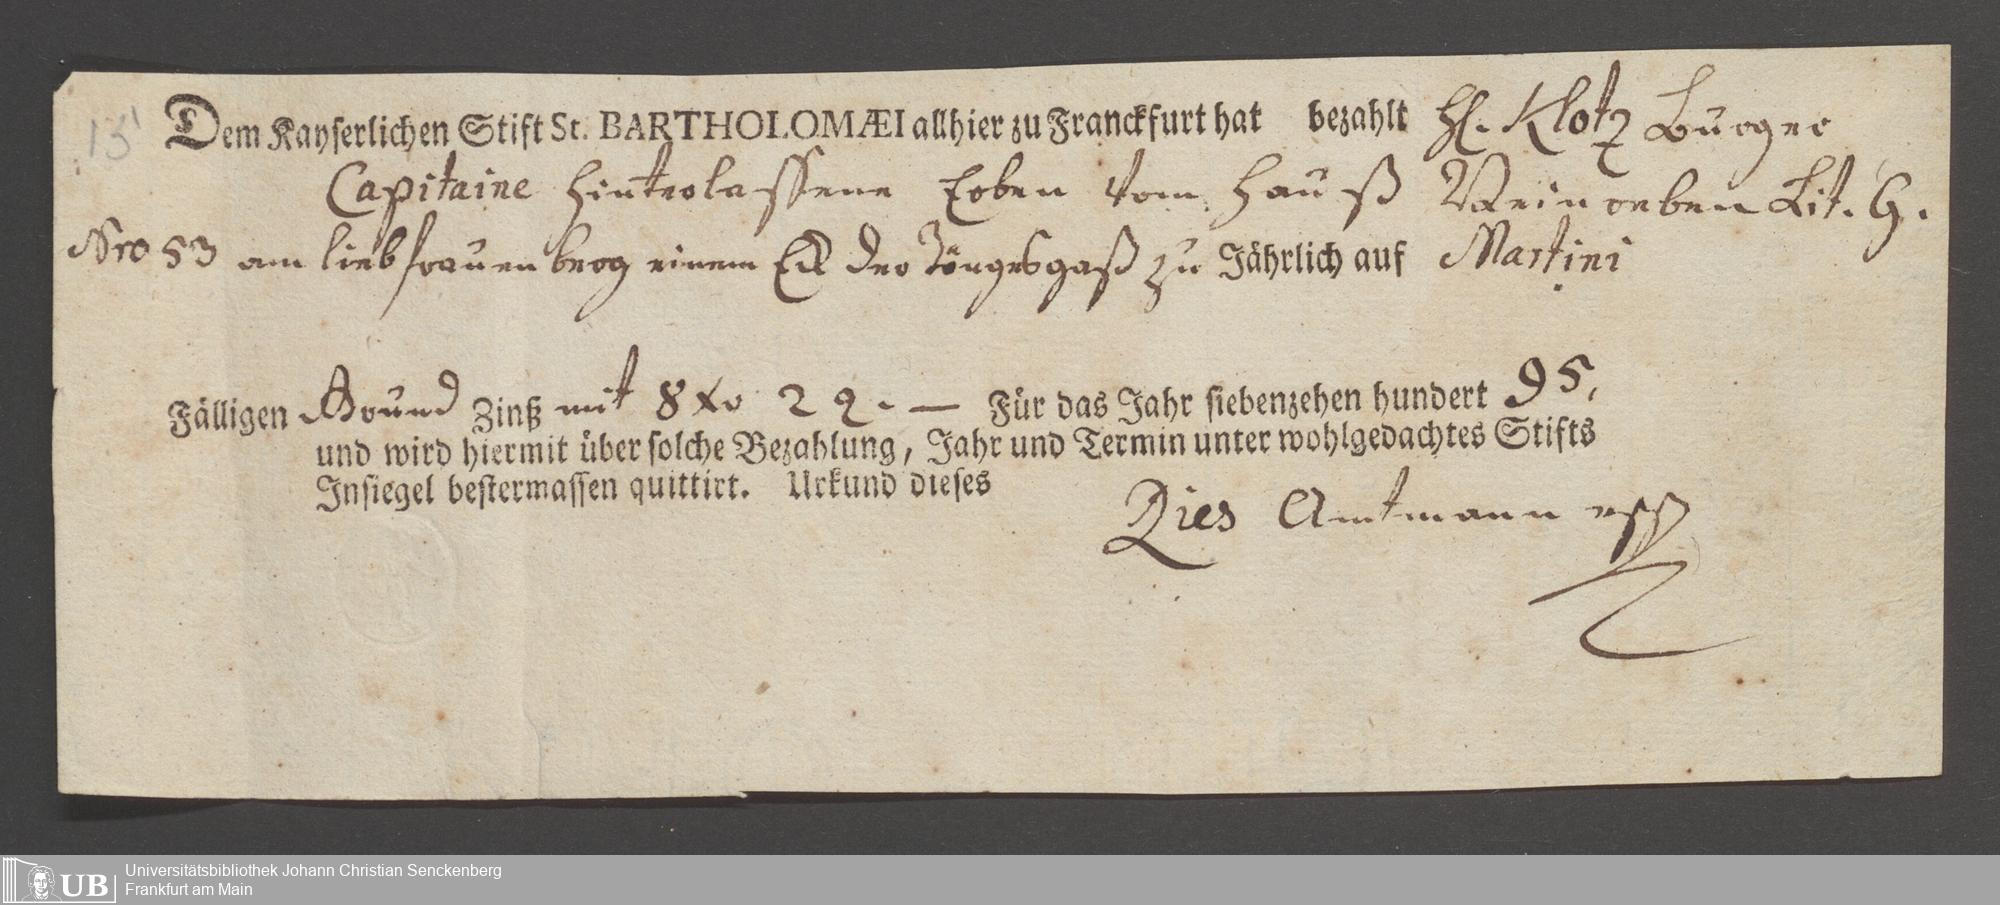 15
Dem Kayserlichen Stift St. BARTHOLOMÆI allhier zu Franckfurt hat bezahlt H. Klotz Burger
Capitaine hinterlassene Erben vom Hauß Weinreben Lit. G.
Nro 53 am liebfrauenberg einem Eck der Töngesgaß zu Jährlich auf Martini
Fälligen Grund Zinß mit 8 Xr 2 2. — Für das Jahr siebenzehen hundert 95,
und wird hiermit über solche Bezahlung, Jahr und Termin unter wohlgedachtes Stifts
Insiegel bestermassen quittirt. Urkund dieses
Dies Amtmann
Universitätsbibliothek Johann Christian Senckenberg
Frankfurt am Main
UB